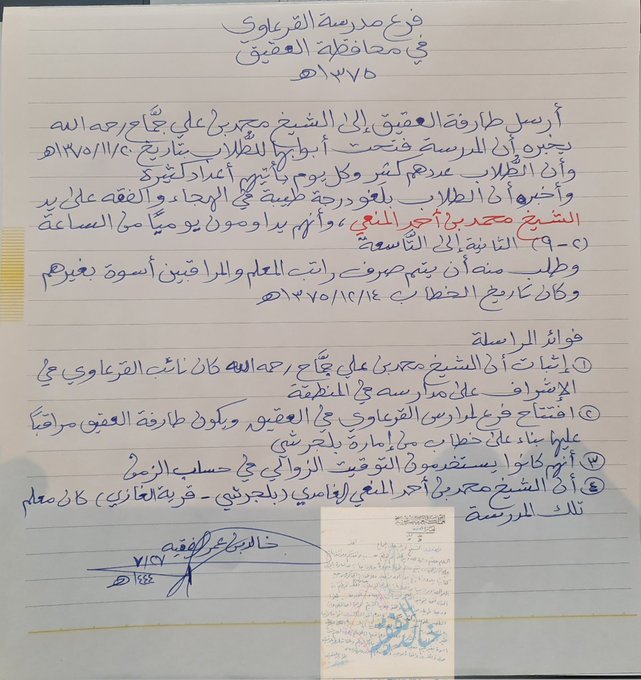 فرع مدرسة القرعاوي
في محافظة العقيق
١٣٧٥هـ
أرسل طارفة العقيق إلى الشيخ محمد بن علي جمَّاح رحمه الله
يخبره أن المدرسة فتحت أبوابها للطُّلاب بتاريخ ١٣٧٥/١١/٢٠هـ
وأن الطُّلاب عددهم كثير وكل يوم يأتيهم أعداد كثيرة
وأخبره أن الطلاب بلغو درجة طيبة في الهجاء والفقه على يد
الشيخ محمد بن أحمد المنعي ، وأنهم يداومون يوميًا من الساعة
(٢-٩) الثانية إلى التَّاسعة
وطلب منه أن يتم صرف راتب المعلم والمراقبين أسوة بغيرهم
وكان تاريخ الخطاب ١٣٧٥/١٢/١٤هـ
فوائد المراسلة
① إثبات أن الشيخ محمد بن علي جمَّاح رحمه الله كان نائب القرعاوي في
الإشراف على مدارسه في المنطقة
② افتتاح فرع لمدارس القرعاوي في العقيق ويكون طارفة العقيق مراقبًا
عليها بناء على خطاب من إمارة بلجرشي
③ أنهم كانوا يستخدمون التوقيت الزوالي في حساب الزمن
④ أن الشيخ محمد بن أحمد المنعي الغامدي (بلجرشي - قرية الغازي) كان معلم
تلك المدرسة
خالد بن عمر الفقيه
٧/٢٧
١٤٤٤هـ